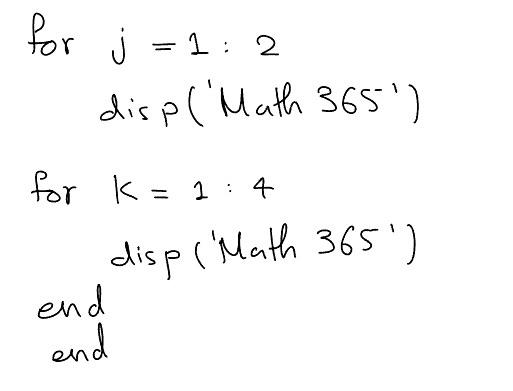 for j = 1 : 2
disp('Math 365')
for k = 1 : 4
disp('Math 365')
end
end